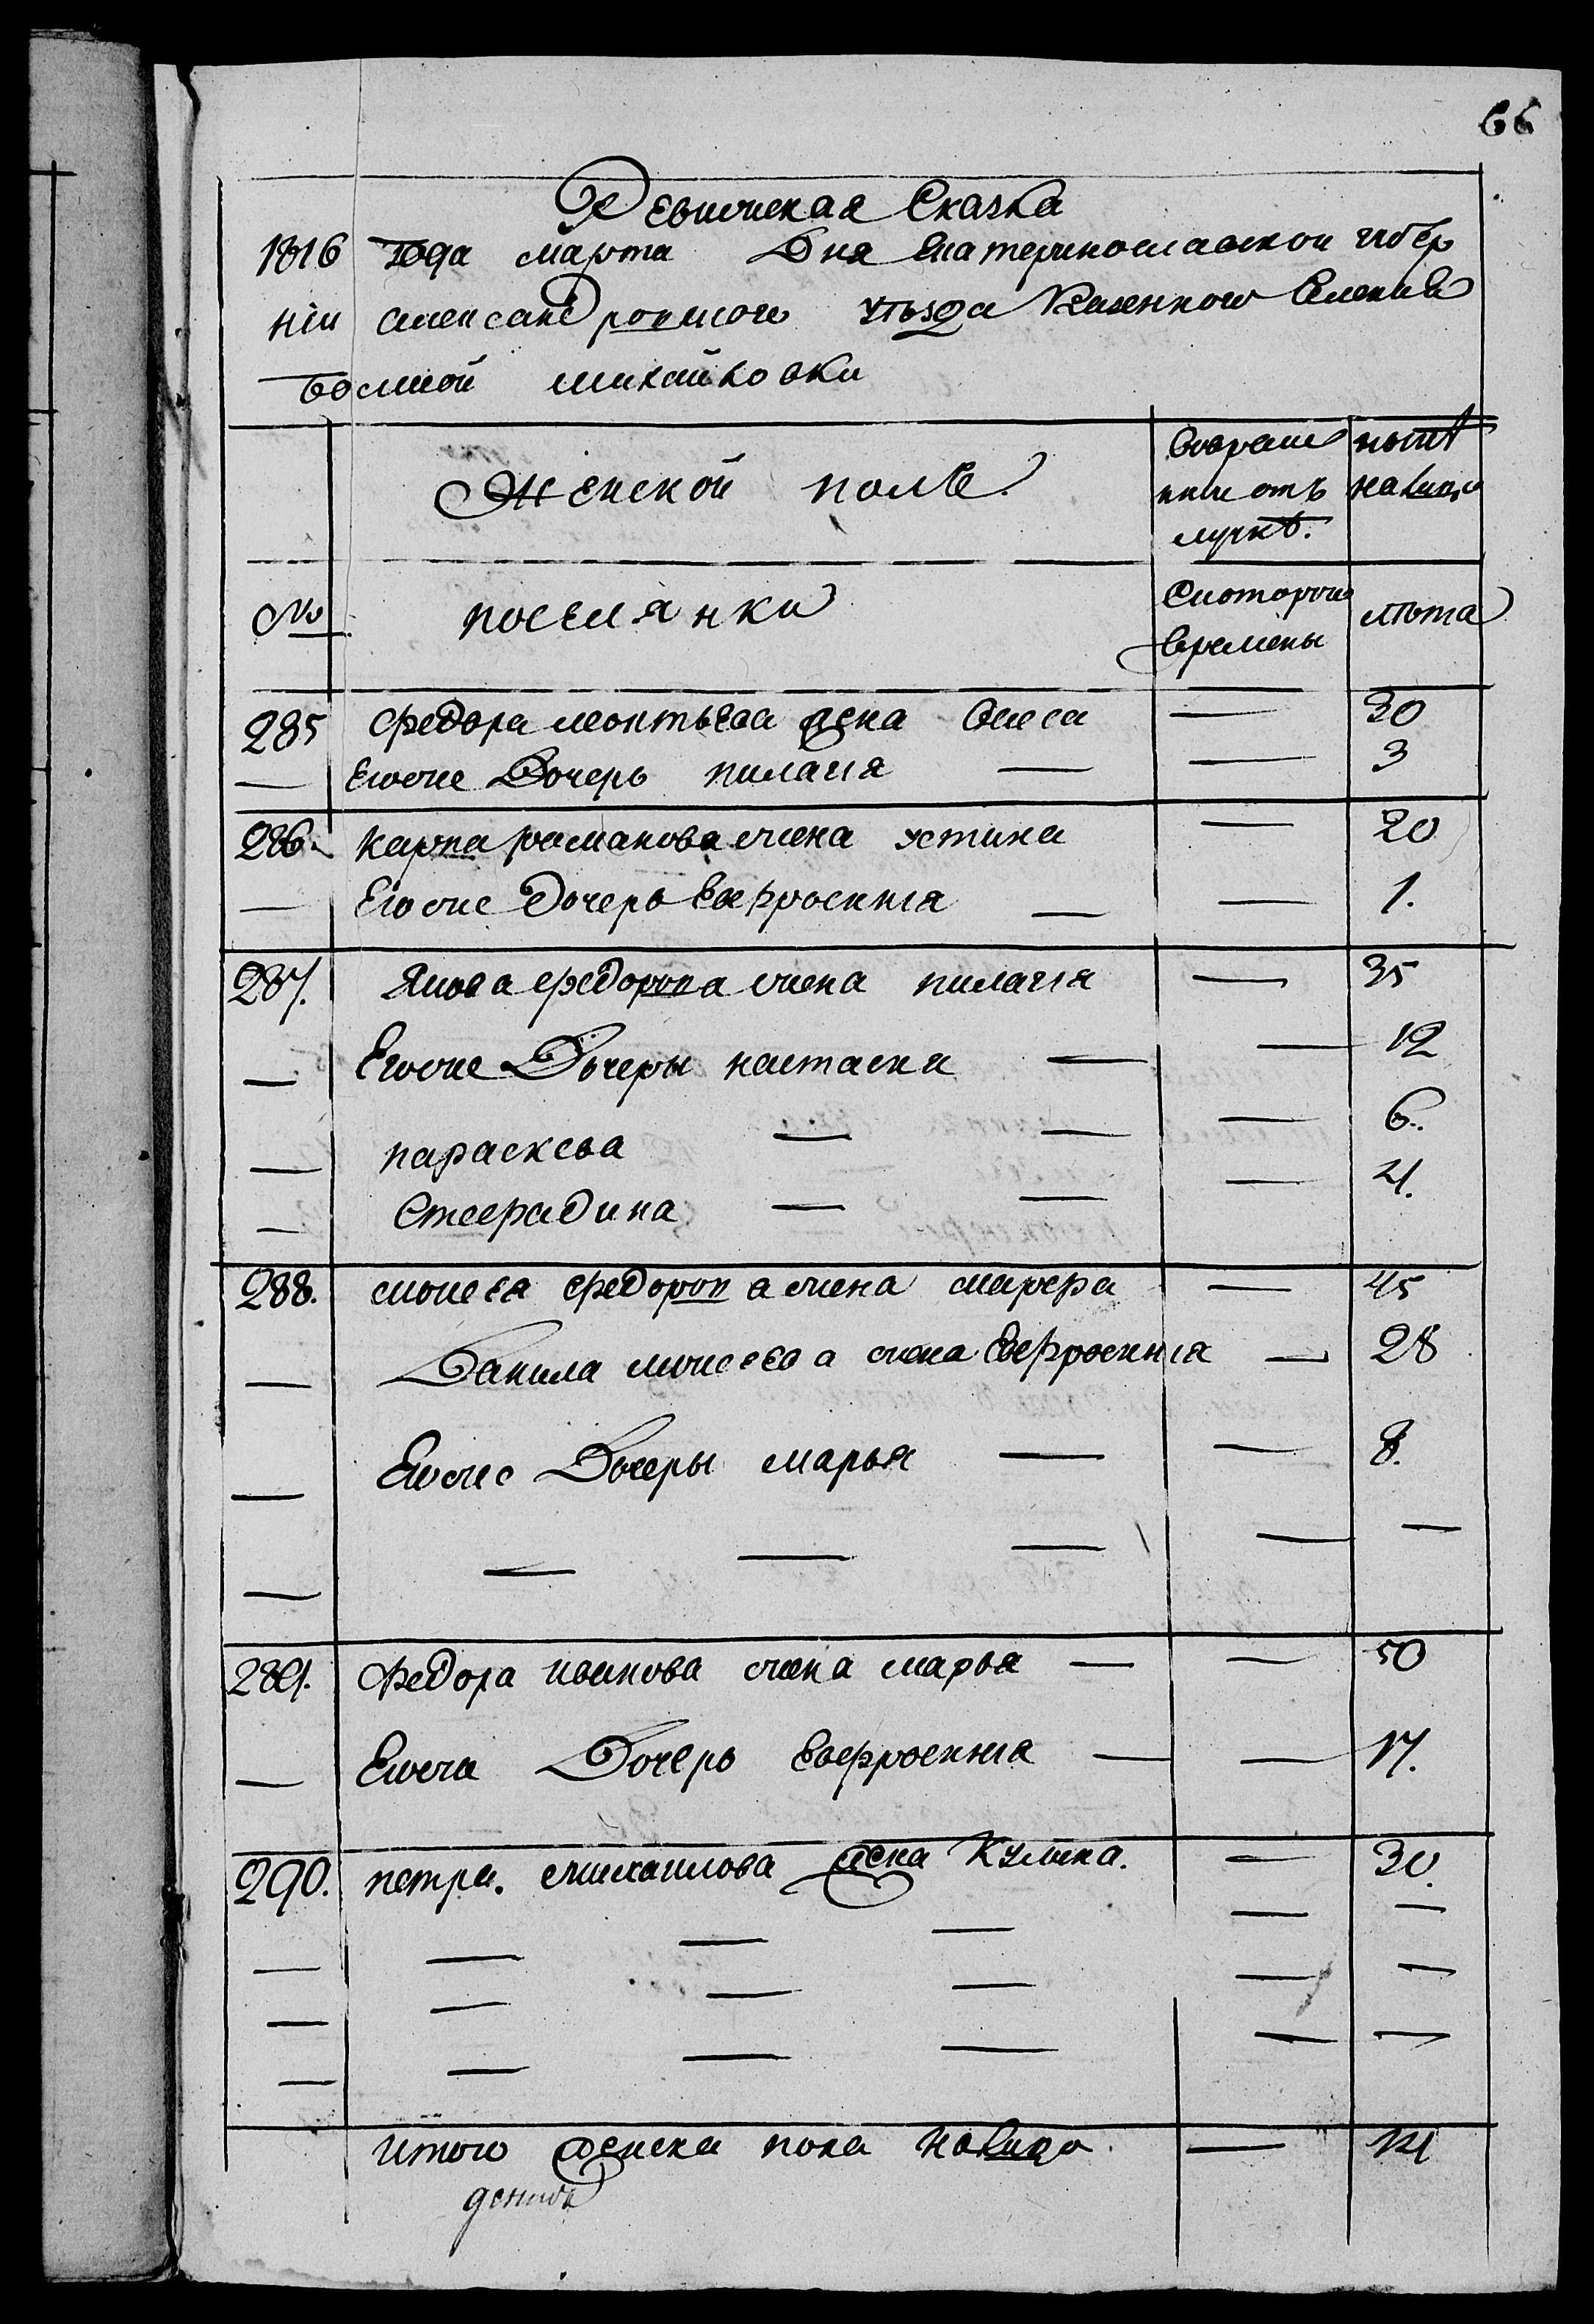 66
Ревижская Сказка
1816 Года марта Дня Екатеринославской губер
нии александровского уѣзда Казенного Селения
болшой михайловки
Женской полъ. Во времянной отъ лучкѣ. нынѣ налицо
№ поселянки Скоторого времены лѣта
285 федора леонтьева жена Олеса — 30
— Егоже Дочерь пилагия — — 3
286. карпа романова жена устина — 20
— Егоже дочерь Евфросиния — — 1.
287. Якова федорова жена пилагия — 35
— Егоже Дочеры настасия — — 12
— параскева — — — 6.
— Степадина — — — 4.
288. моисея федорова жена марфа — 45
— Данила моисеева жена Евфросиния — 28
— Егоже Дочеры марья — — 8.
— — — — — —
289. Федора иванова жена марья — — 50
— Егоже Дочерь Евфросиния — — 17.
290. петра михаилова жена Кулина. — 30.
— — — — — —
— — — — — —
— — — — — —
итого женска пола налицо. — 14